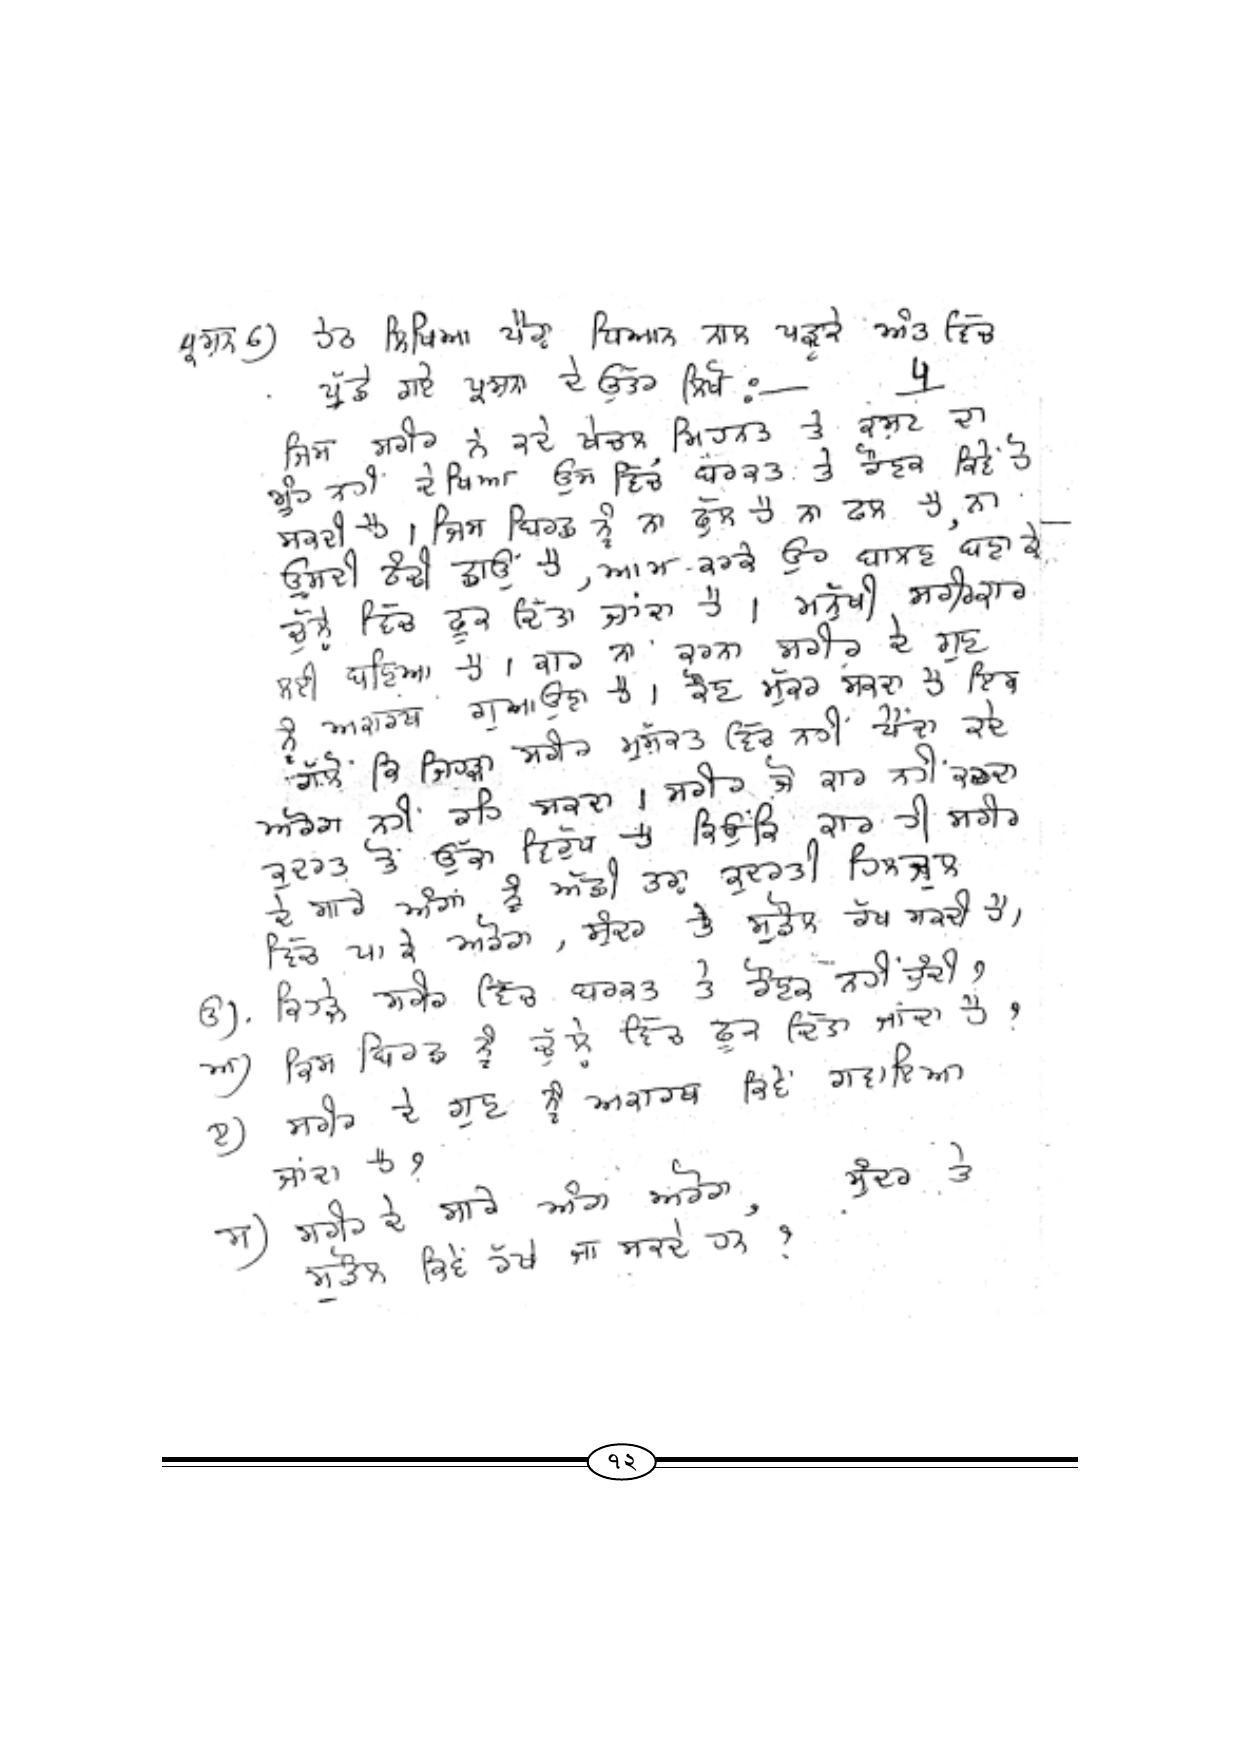 ਪ੍ਰਸ਼ਨ 6) ਹੇਠ ਲਿਖਿਆ ਪੈਰ੍ਹਾ ਧਿਆਨ ਨਾਲ ਪੜ੍ਹਕੇ ਅੰਤ ਵਿੱਚ
ਪੁੱਛੇ ਗਏ ਪ੍ਰਸ਼ਨਾ ਦੇ ਉੱਤਰ ਲਿਖੋ :— 5
ਜਿਸ ਸਰੀਰ ਨੇ ਕਦੇ ਖੇਚਲ, ਮਿਹਨਤ ਤੇ ਕਸ਼ਟ ਦਾ
ਮੂੰਹ ਨਹੀਂ ਦੇਖਿਆ ਉਸ ਵਿੱਚ ਬਰਕਤ ਤੇ ਰੌਣਕ ਕਿਵੇਂ ਹੋ
ਸਕਦੀ ਹੈ । ਜਿਸ ਬਿਰਛ ਨੂੰ ਨਾ ਫੁੱਲ ਹੈ ਨਾ ਫਲ ਹੈ, ਨਾ
ਉਸਦੀ ਠੰਢੀ ਛਾਉਂ ਹੈ, ਆਮ ਕਰਕੇ ਉਹ ਬਾਲਣ ਬਣਾ ਕੇ
ਚੁੱਲ੍ਹੇ ਵਿੱਚ ਫੂਕ ਦਿੱਤਾ ਜਾਂਦਾ ਹੈ । ਮਨੁੱਖੀ ਸਰੀਰ ਕਾਰ
ਲਈ ਬਣਿਆ ਹੈ । ਕਾਰ ਨਾ ਕਰਨਾ ਸਰੀਰ ਦੇ ਗੁਣ
ਨੂੰ ਅਕਾਰਥ ਗੁਆਉਣਾ ਹੈ । ਕੌਣ ਮੁੱਕਰ ਸਕਦਾ ਹੈ ਇਸ
ਗੱਲੋਂ ਕਿ ਜਿਹੜਾ ਸਰੀਰ ਮੁਸ਼ੱਕਤ ਵਿੱਚ ਨਹੀਂ ਪੈਂਦਾ ਕਦੇ
ਅਰੋਗ ਨਹੀਂ ਰਹਿ ਸਕਦਾ । ਸਰੀਰ ਜੋ ਕਾਰ ਨਹੀਂ ਕਰਦਾ
ਕੁਦਰਤ ਤੋਂ ਉੱਕਾ ਵਿਰੁੱਧ ਹੈ ਕਿਉਂਕਿ ਕਾਰ ਹੀ ਸਰੀਰ
ਦੇ ਸਾਰੇ ਅੰਗਾਂ ਨੂੰ ਅੱਛੀ ਤਰ੍ਹਾਂ ਕੁਦਰਤੀ ਹਿਲਜੁਲ
ਵਿੱਚ ਪਾ ਕੇ ਅਰੋਗ, ਸੁੰਦਰ ਤੇ ਸੁਡੌਲ ਰੱਖ ਸਕਦੀ ਹੈ ।
ੳ). ਕਿਹੜੇ ਸਰੀਰ ਵਿੱਚ ਬਰਕਤ ਤੇ ਰੌਣਕ ਨਹੀਂ ਹੁੰਦੀ ?
ਅ) ਕਿਸ ਬਿਰਛ ਨੂੰ ਚੁੱਲ੍ਹੇ ਵਿੱਚ ਫੂਕ ਦਿੱਤਾ ਜਾਂਦਾ ਹੈ ?
ੲ) ਸਰੀਰ ਦੇ ਗੁਣ ਨੂੰ ਅਕਾਰਥ ਕਿਵੇਂ ਗਵਾਇਆ
ਜਾਂਦਾ ਹੈ ?
ਸ) ਸਰੀਰ ਦੇ ਸਾਰੇ ਅੰਗ ਅਰੋਗ, ਸੁੰਦਰ ਤੇ
ਸੁਡੌਲ ਕਿਵੇਂ ਰੱਖੇ ਜਾ ਸਕਦੇ ਹਨ ?
੧੨